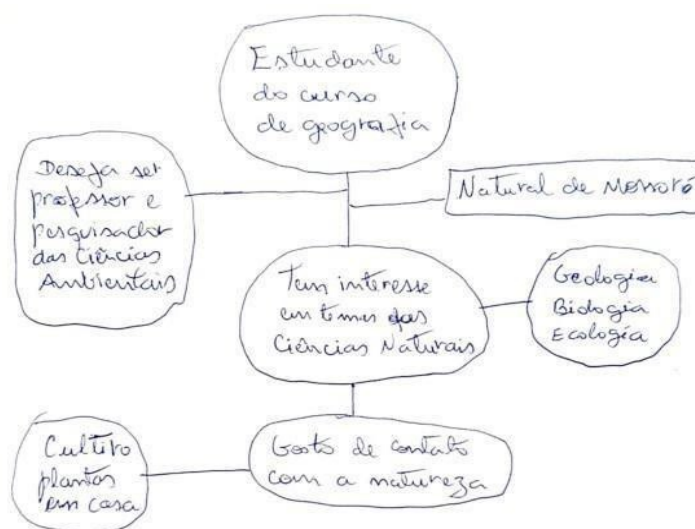 Estudante
do curso
de geografia
Deseja ser
professor e
pesquisador
das Ciências
Ambientais
Natural de Mossoró
Tem interesse
em temas das
Ciências Naturais
Geologia
Biologia
Ecologia
Gosto de contato
com a natureza
Cultivo
plantas
em casa